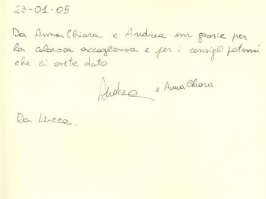 23-01-05
Da Anna Chiara e Andrea un grazie per
la calorosa accoglienza e per i consigli
che ci avete dato
Andrea e Anna Chiara
Da Lucca.